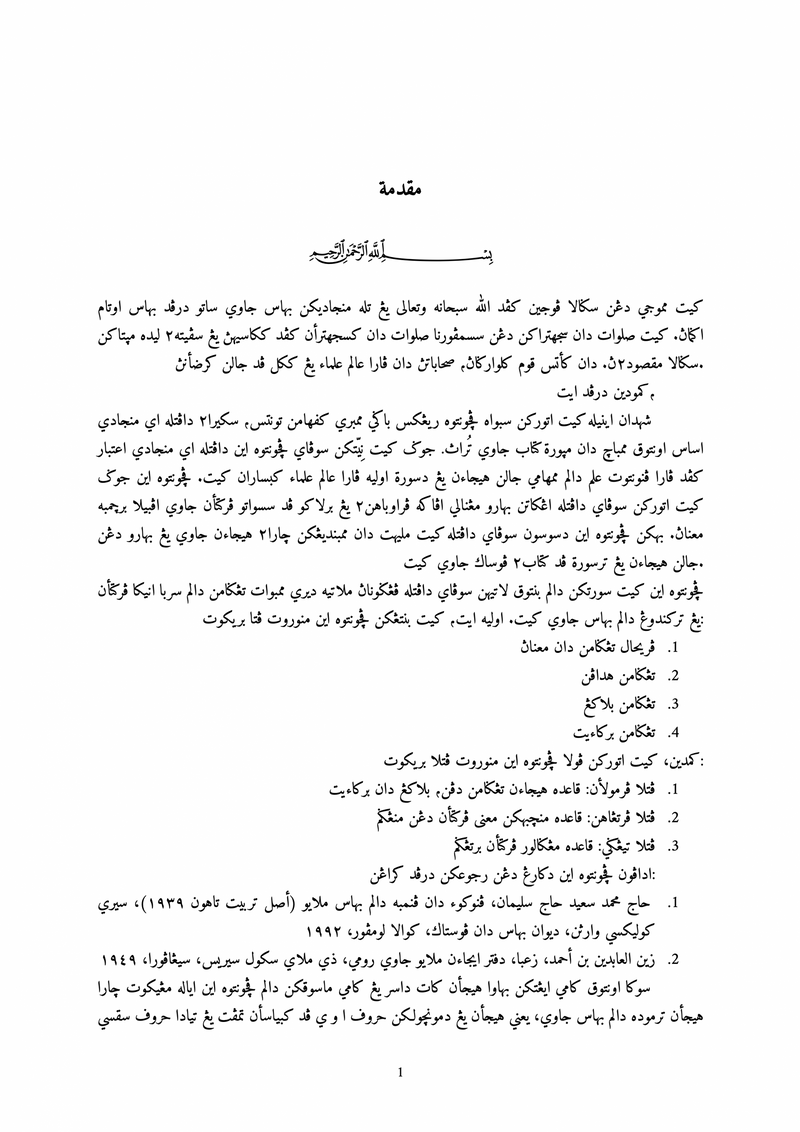 مقدمة
بِسْمِ اللَّهِ الرَّحْمَٰنِ الرَّحِيمِ
كيت مموجي دڠن سكالا ڤوجين كڤد الله سبحانه وتعالى يڠ تله منجاديكن بهاس جاوي ساتو درڤد بهاس اوتام
اكماڽ. كيت صلوات دان سجهتراكن دڠن سسمڤورنا صلوات دان كسجهترأن كڤد ككاسيهڽ يڠ سڤيته٢ ليده مپتاكن
سكالا مقصود٢ڽ. دان كأتس قوم كلواركاڽ، صحاباتڽ دان ڤارا عالم علماء يڠ ككل ڤد جالن كرضأنڽ.
كمودين درڤد ايت،
شهدان اينيله كيت اتوركن سبواه ڤچونتوه ريڠكس باكي ممبري كفهامن تونتس، سكيرا٢ داڤتله اي منجادي
اساس اونتوق ممباچ دان مپورة كتاب جاوي تُراث. جوݢ كيت نِيّتكن سوڤاي ڤچونتوه اين داڤتله اي منجادي اعتبار
كڤد ڤارا ڤنونتوت علم دالم ممهامي جالن هيجاءن يڠ دسورة اوليه ڤارا عالم علماء كبساران كيت. ڤچونتوه اين جوݢ
كيت اتوركن سوڤاي داڤتله اڠكاتن بهارو مڠنالي اڤاكه ڤراوباهن٢ يڠ برلاكو ڤد سسواتو ڤركتأن جاوي اڤبيلا برچمبه
معناڽ. بهكن ڤچونتوه اين دسوسون سوڤاي داڤتله كيت مليهت دان ممبنديڠكن چارا٢ هيجاءن جاوي يڠ بهارو دڠن
جالن هيجاءن يڠ ترسورة ڤد كتاب٢ ڤوساك جاوي كيت.
ڤچونتوه اين كيت سورتكن دالم بنتوق لاتيهن سوڤاي داڤتله ڤڠݢوناڽ ملاتيه ديري ممبوات تڠكامن دالم سربا انيكا ڤركتأن
يڠ تركندوڠ دالم بهاس جاوي كيت. اوليه ايت، كيت بنتڠكن ڤچونتوه اين منوروت ڤتا بريكوت:
1. ڤريحال تڠكامن دان معناڽ
2. تڠكامن هداڤن
3. تڠكامن بلاكڠ
4. تڠكامن بركاءيت
كمدين، كيت اتوركن ڤولا ڤچونتوه اين منوروت ڤتلا بريكوت:
1. ڤتلا ڤرمولأن: قاعده هيجاءن تڠكامن دڤن، بلاكڠ دان بركاءيت
2. ڤتلا ڤرتڠاهن: قاعده منچبهكن معنى ڤركتأن دڠن منڠكم
3. ڤتلا تيڠكي: قاعده مڠكالور ڤركتأن برتڠكم
اداڤون ڤچونتوه اين دكارڠ دڠن رجوعكن درڤد كراڠن:
1. حاج محمد سعيد حاج سليمان، ڤنوكوء دان ڤنمبه دالم بهاس ملايو (أصل تربيت تاهون ١٩٣٩)، سيري
كوليكسي وارثن، ديوان بهاس دان ڤوستاك، كوالا لومڤور، ١٩٩٢
2. زين العابدين بن أحمد، زعبا، دفتر ايجاءن ملايو جاوي رومي، ذي ملاي سكول سيريس، سيڠاڤورا، ١٩٤٩
سوكا اونتوق كامي ايڠتكن بهاوا هيجأن كات داسر يڠ كامي ماسوقكن دالم ڤچونتوه اين اياله مڠيكوت چارا
هيجأن ترموده دالم بهاس جاوي، يعني هيجأن يڠ دمونچولكن حروف ا و ي ڤد كبياسأن تمڤت يڠ تيادا حروف سقسي
1